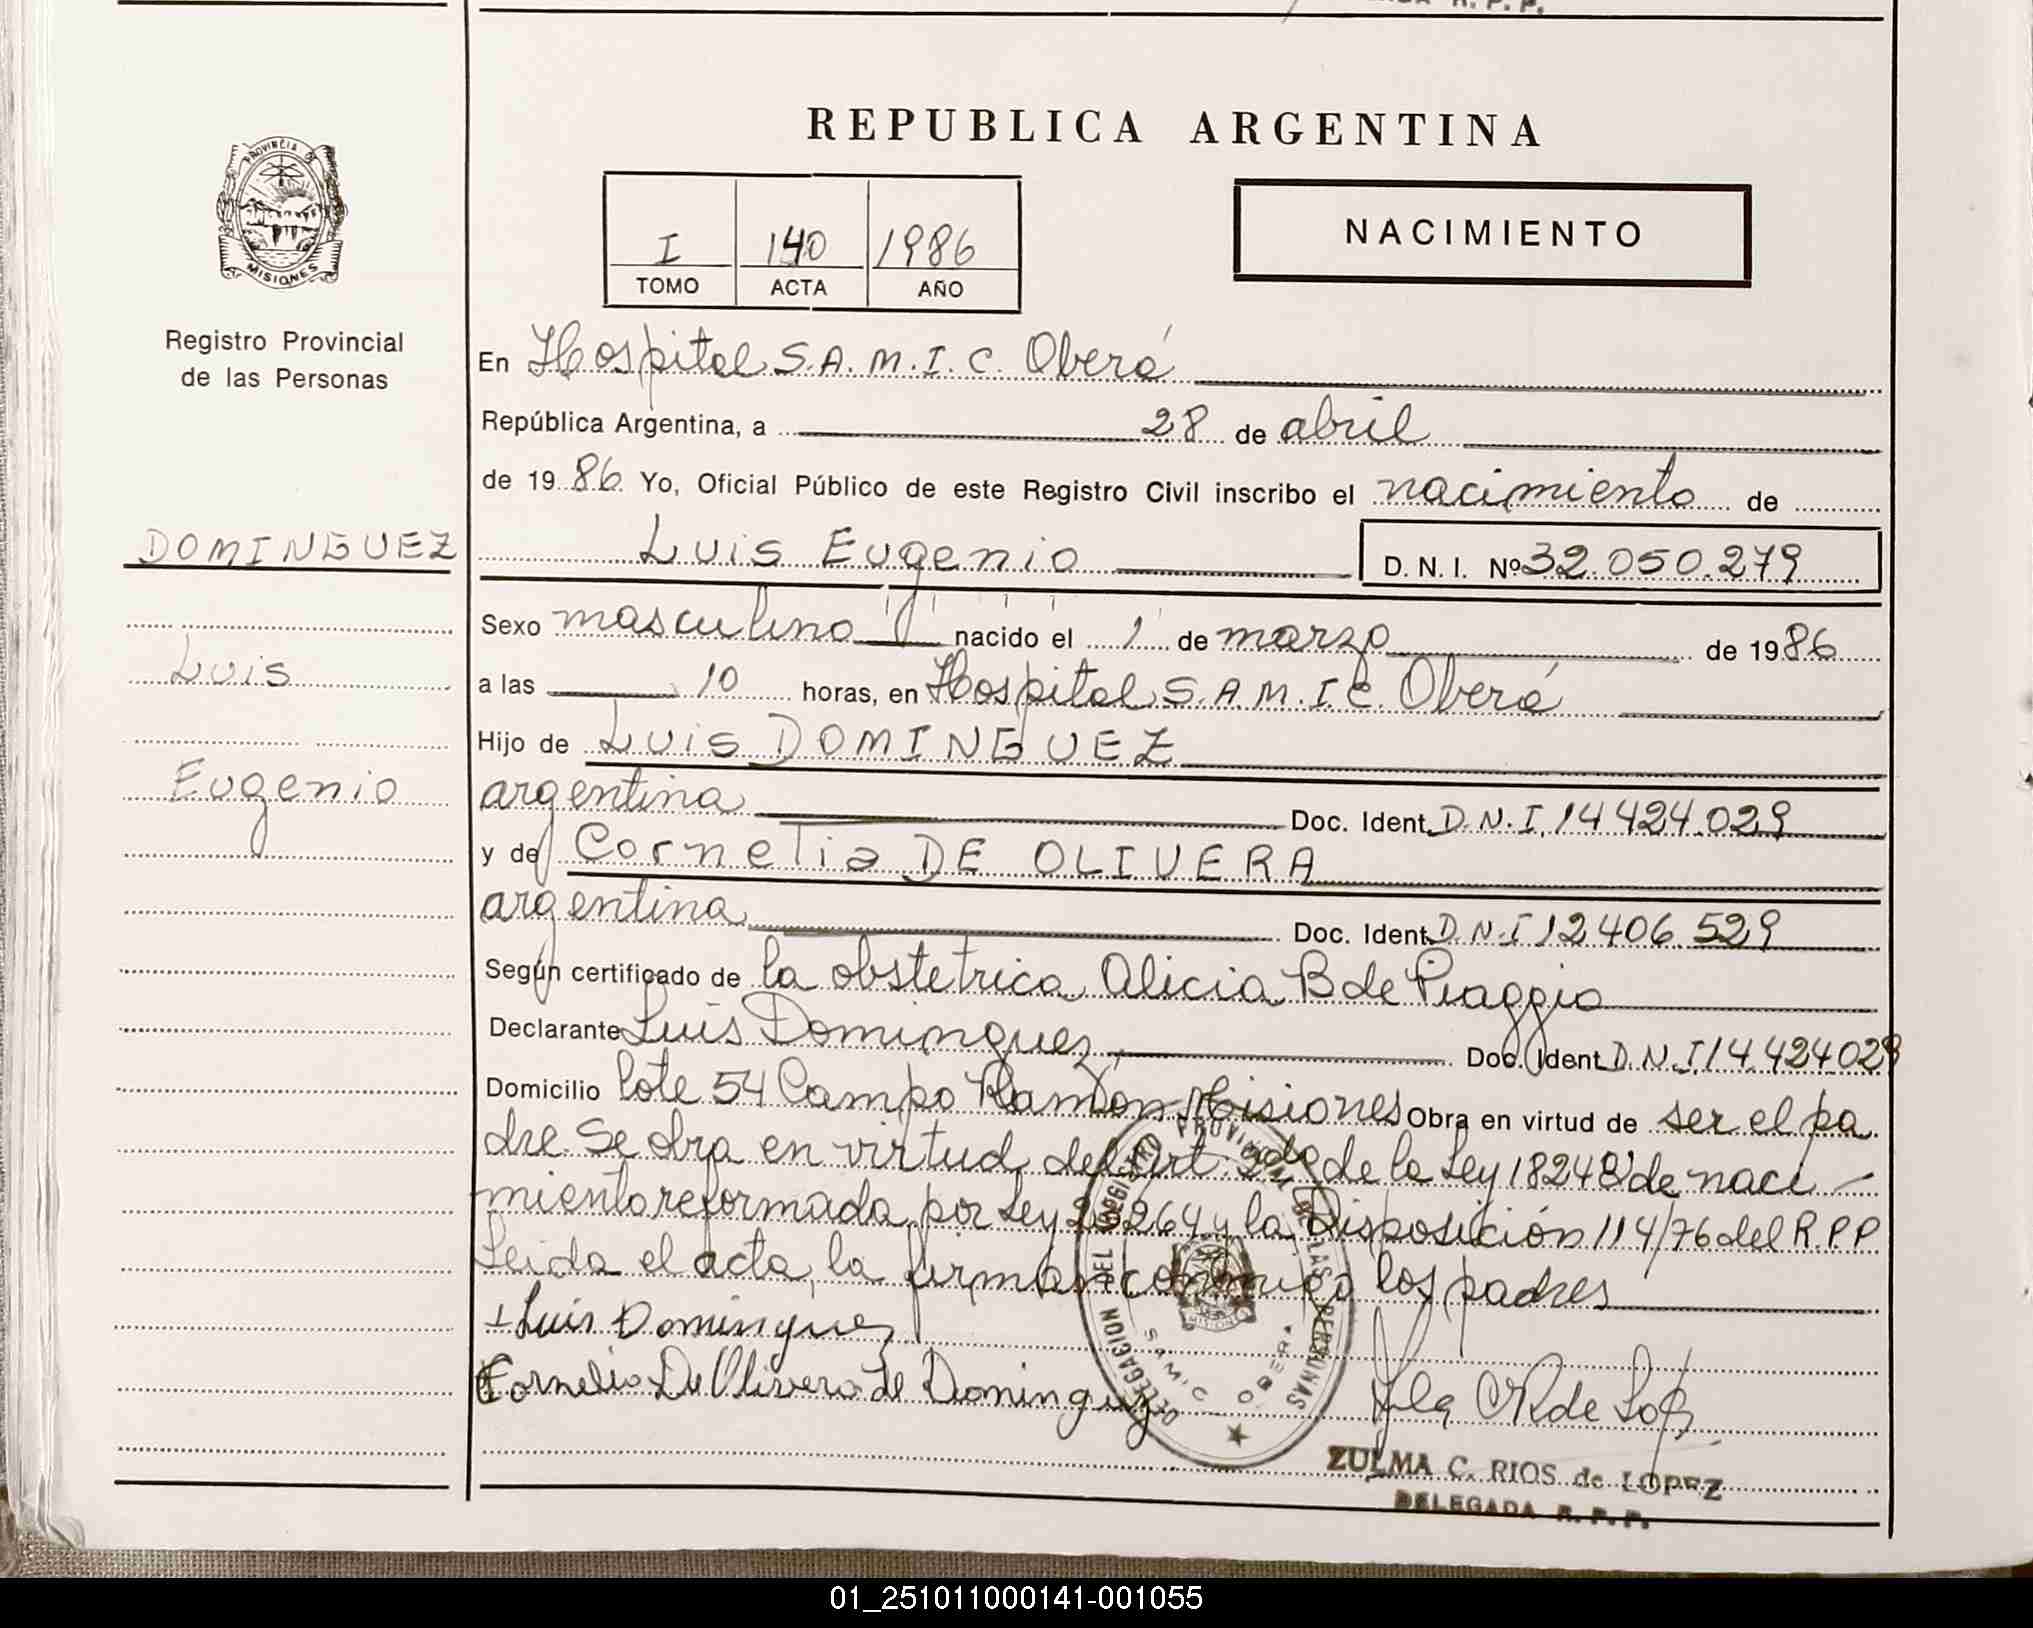 REPUBLICA ARGENTINA
PROVINCIA DE
MISIONES
Registro Provincial
de las Personas
I 140 1986
TOMO ACTA AÑO
NACIMIENTO
En Hospital S.A.M.I.C. Oberá
República Argentina, a 28 de abril
de 1986 Yo, Oficial Público de este Registro Civil inscribo el nacimiento de
DOMINGUEZ
Luis Eugenio D.N.I. Nº 32.050.279
Sexo masculino nacido el 1 de marzo de 1986
Luis
a las 10 horas, en Hospital S.A.M.I.C. Oberá
Hijo de Luis DOMINGUEZ
Eugenio
argentina Doc. Ident. D.N.I. 14.424.029
y de Cornelia DE OLIVERA
argentina Doc. Ident. D.N.I 12.406.529
Según certificado de la obstetrica Alicia B de Piaggio
Declarante Luis Dominguez, Doc. Ident. D.N.I 14.424.029
Domicilio lote 54 Campo Ramón Misiones Obra en virtud de ser el pa
dre. Se obra en virtud del art. 2do de la Ley 18248 de naci
miento reformada por Ley 23264 y la Disposición 114/76 del R.P.P
Leida el acta, la firman conmigo los padres
Luis Dominguez
Cornelia De Olivera de Dominguez
DELEGACION DEL REGISTRO PROVINCIAL DE LAS PERSONAS
SAMIC OBERA
ZULMA C. RIOS de LOPEZ
DELEGADA R. P. P.
01_251011000141-001055